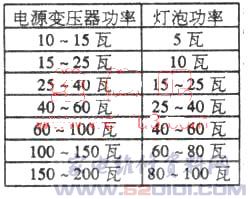 电源变压器功率 灯泡功率
10~15瓦 5瓦
15~25瓦 10瓦
25~40瓦 15~25瓦
40~60瓦 25~40瓦
60~100瓦 40~60瓦
100~150瓦 60~80瓦
150~200瓦 80~100瓦